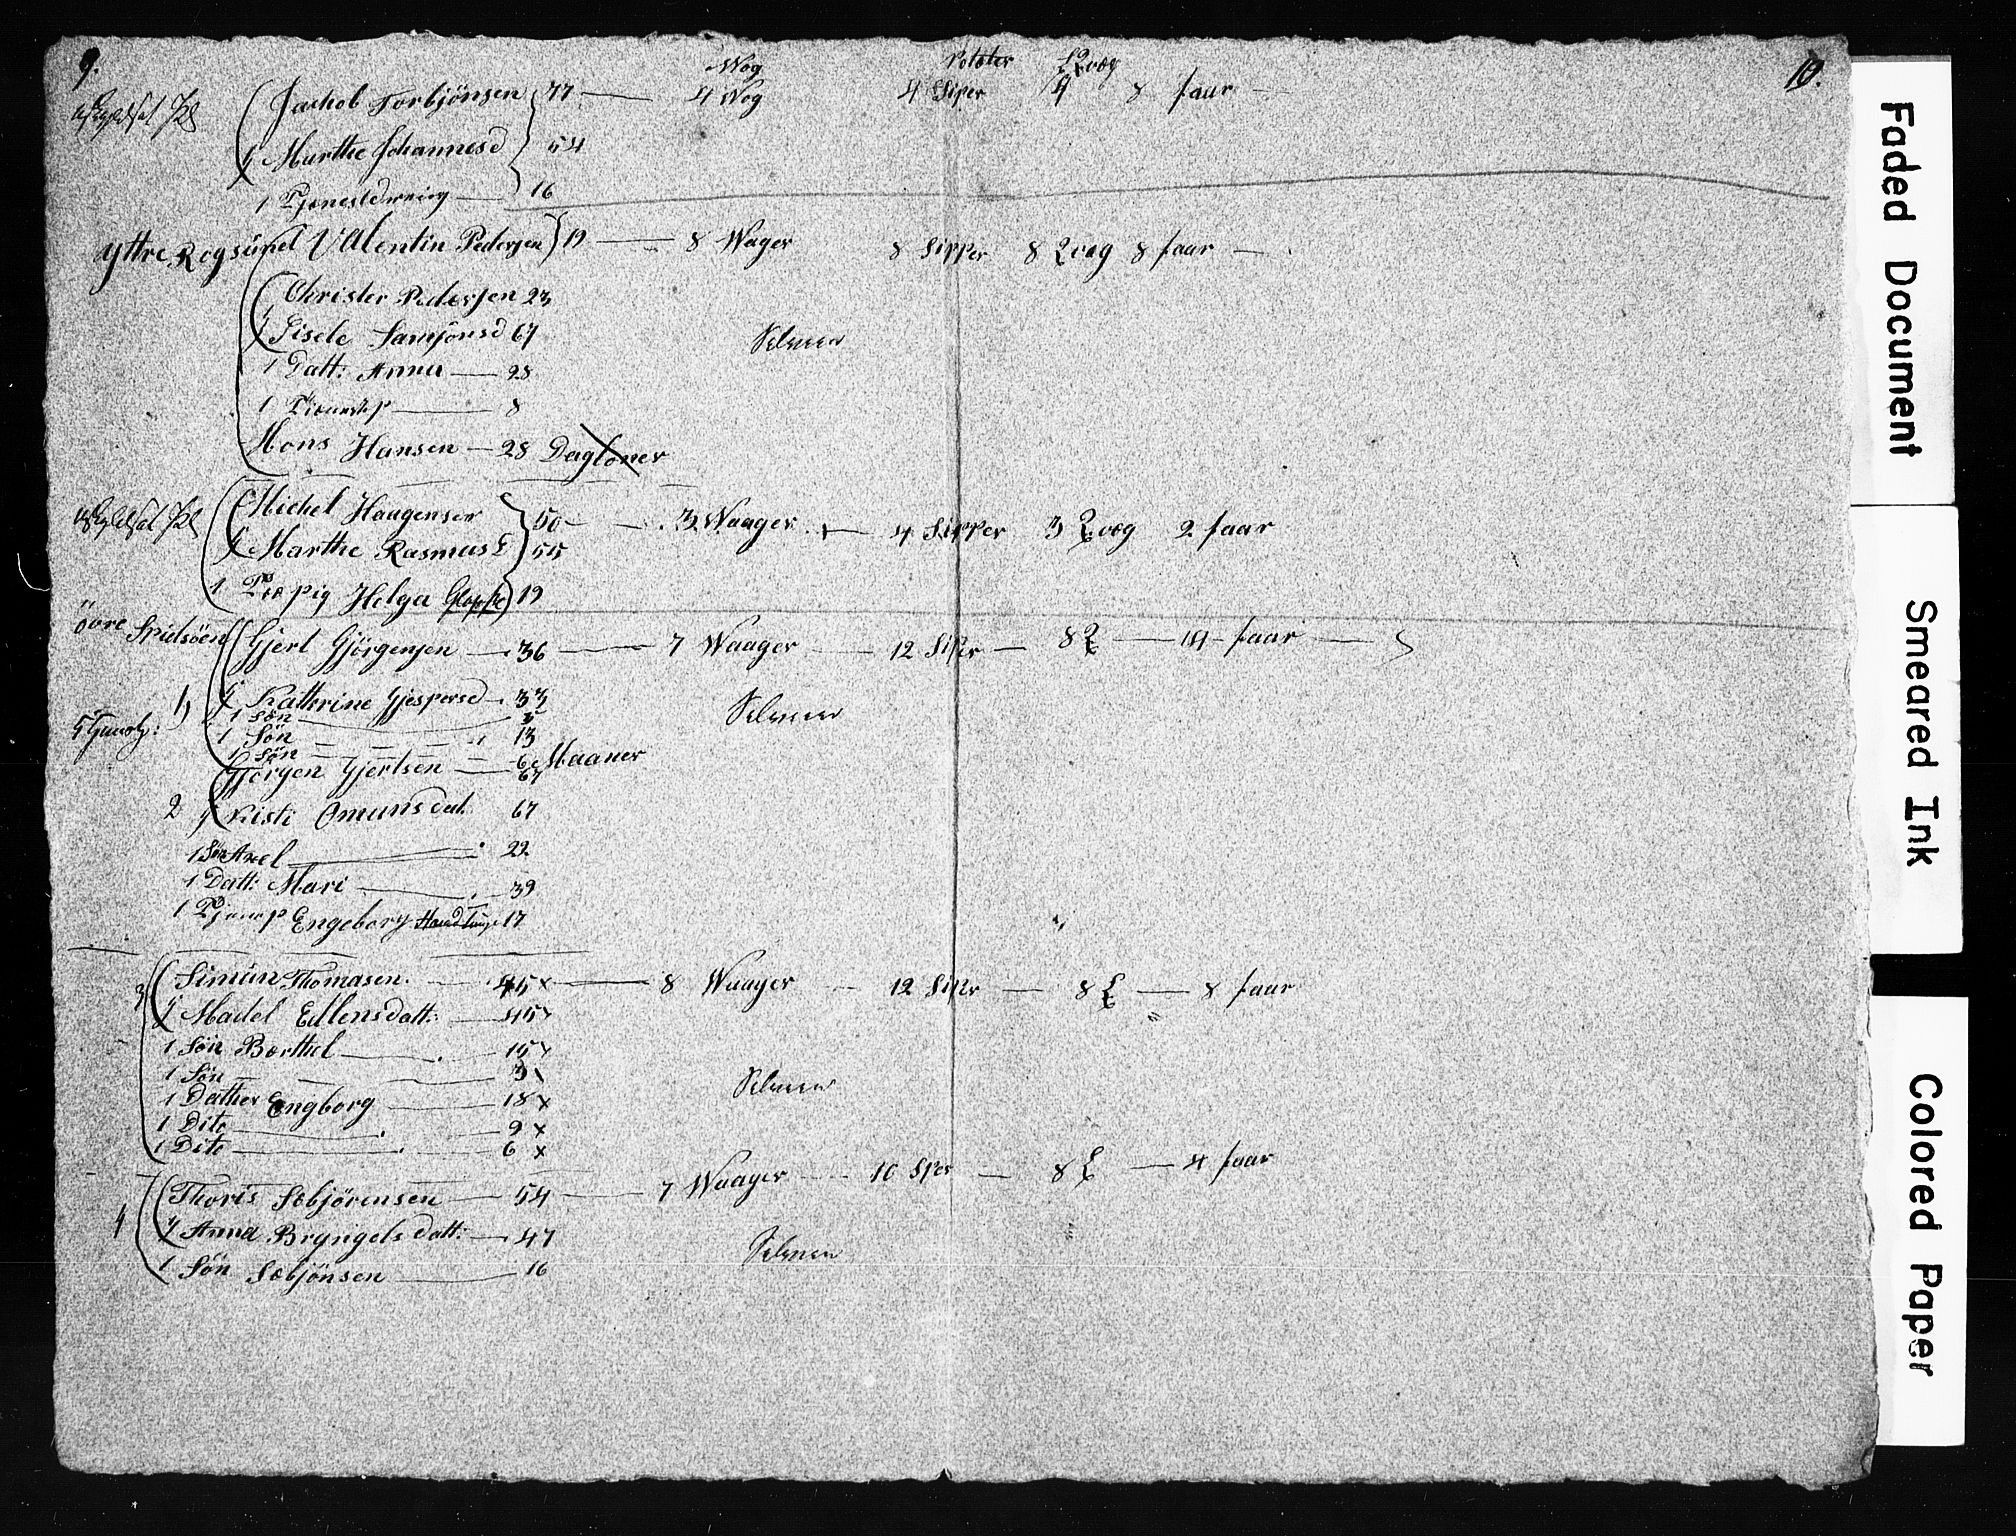 9. 10.
Wog Poteter Qvæg
Jachob Torbjönsen 77 — 4 Wog 4 Siper 4 8 faar —
Marthe Johannesd 54
1 Tjenestdreng — 16
Yttre Rogsünd Valentin Pedersen 19 — 8 Wager 8 Sipper 8 Qvæg 8 faar —
Christer Pedersen 23
Sisele Samsönsd 67
1 Datt: Anna — 28
1 — 8
Mons Hansen — 28 Daglöner
Michel Haugensen 50 — 3 Waager — 4 Sipper 3 Qvæg 2 faar
Marthe Rasmusd 55
1 Helga 19
övre Spidsöen Gjert Gjörgensen — 36 — 7 Waager — 12 Siper — 8 Q — 14 faar —
1 Kathrine Gjespersd — 33
1 Sön — 3
1 Sön — 13
1 Sön — 6 Maaner
Gjörgen Gjertsen — 67
2 Kisti Omunsdat. 67
1 Sön Axel — 22
1 Datt: Mari — 39
1 Engeborg 17
3 Simün Thomasen. — 45 x — 8 Waager — 12 Siper — 8 — 8 faar
Madel Edlensdatt: — 45 x
1 Sön Bærthel — 15 x
1 Sön — 3 x
1 Dather Engborg — 18 x
1 Dito — 9 x
1 Dito — 6 x
4 Thoris Sæbjörensen — 54 — 7 Waager — 10 Sper — 8 — 4 faar
Anna Bryngelsdatt: — 47
1 Sön Sæbjönsen — 16
Faded Document
Smeared Ink
Colored Paper